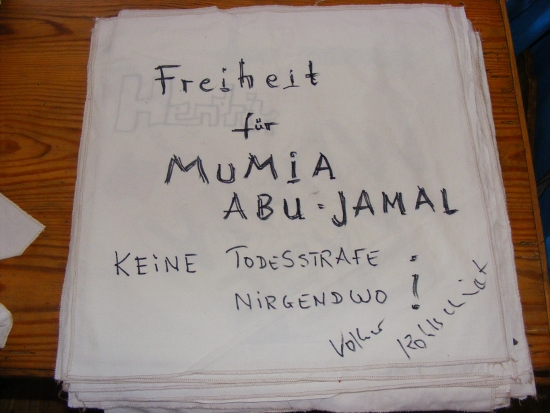 Freiheit
für
MUMiA
ABU-JAMAL
KEiNE TODESSTRAFE
NiRGENDWO !
Volker